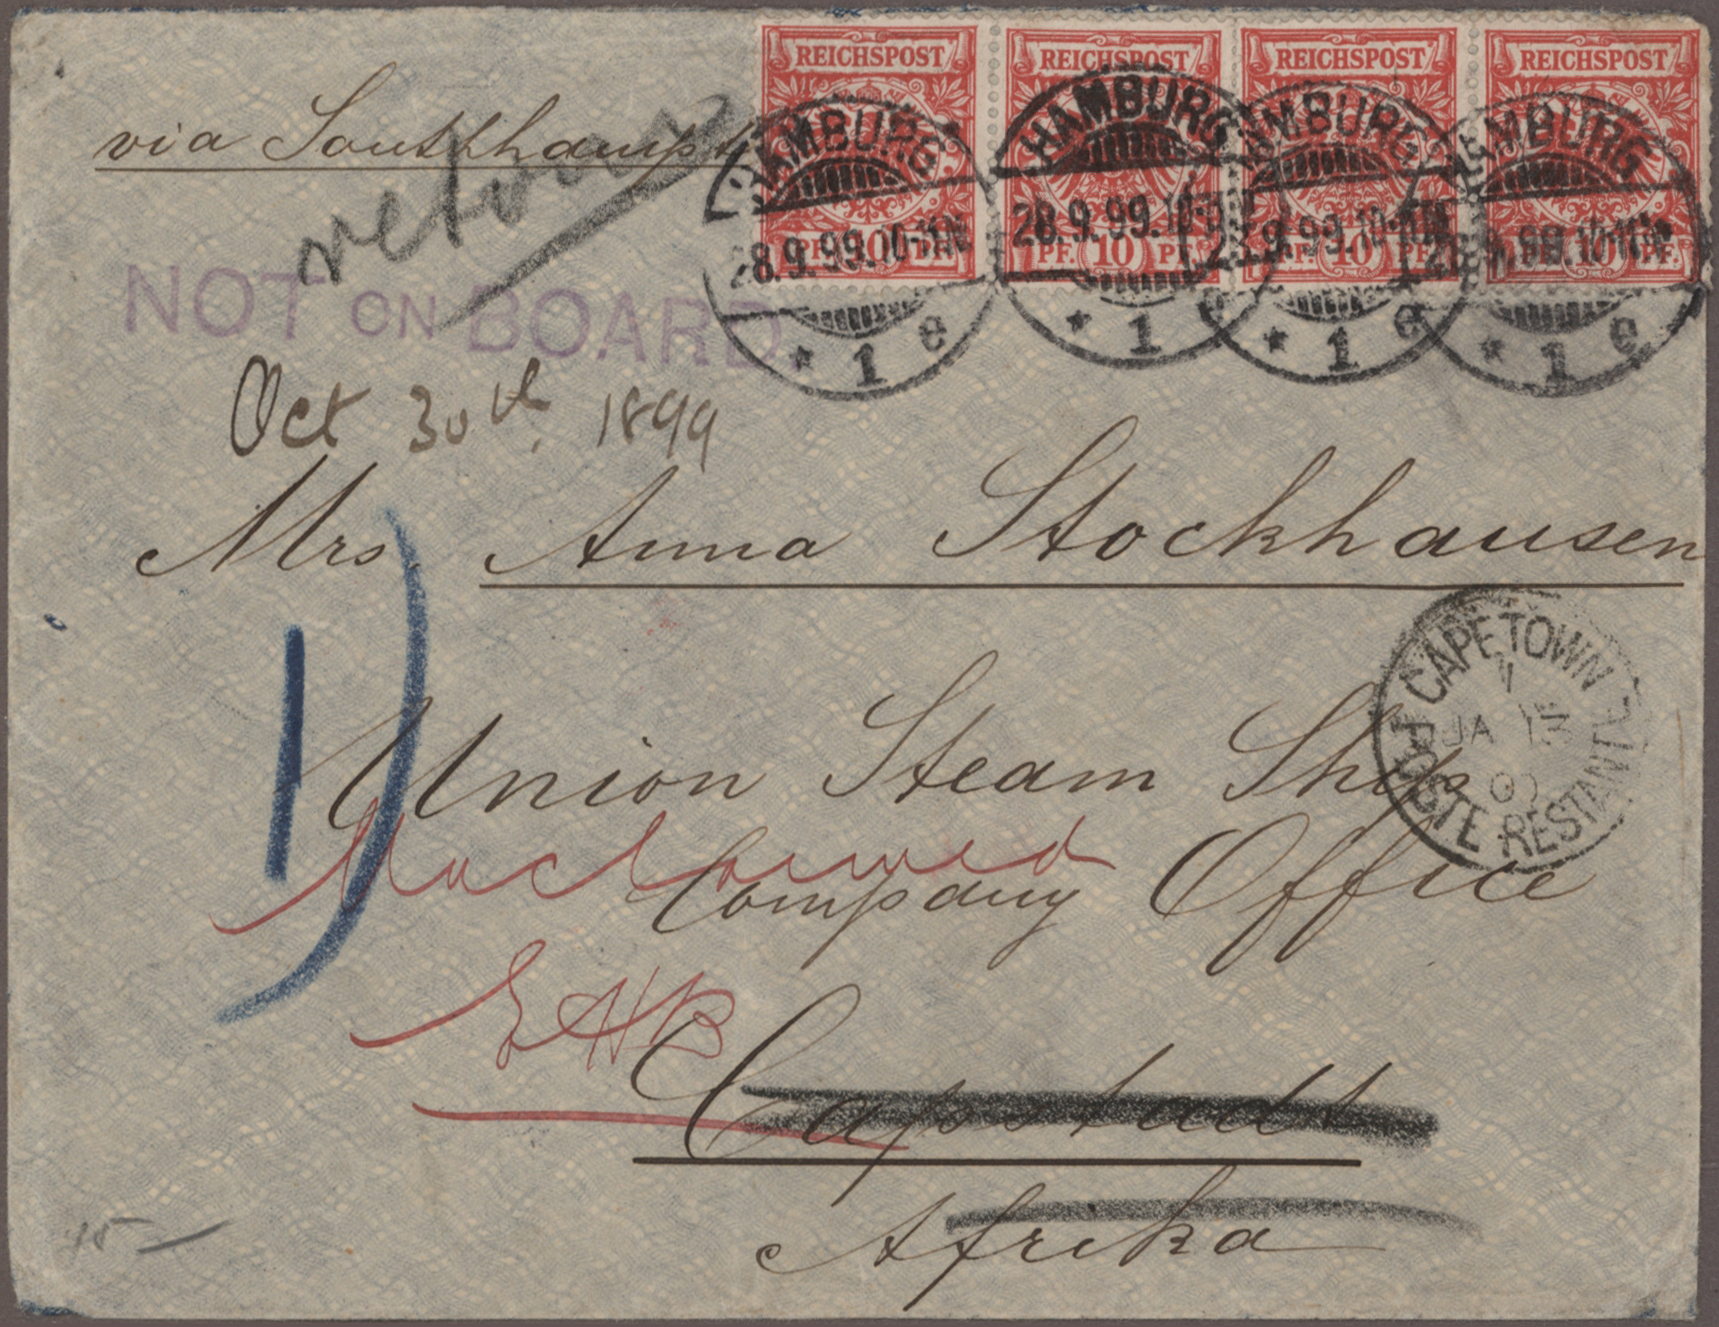 REICHSPOST REICHSPOST REICHSPOST REICHSPOST
PF. 10 PF. PF. 10 PF. PF. 10 PF. PF. 10 PF.
HAMBURG HAMBURG HAMBURG HAMBURG
28.9.99.10-11N 28.9.99.10-11N 28.9.99.10-11N 28.9.99.10-11N
* 1 e * 1 e * 1 e * 1 e
via Southhampt
retour
NOT ON BOARD
Oct 30th 1899
Mrs. Anna Stockhausen
1)
CAPETOWN
JA 13
00
POSTE RESTANTE
Union Steam Ship
Company Office
EHB
Capstadt
Afrika